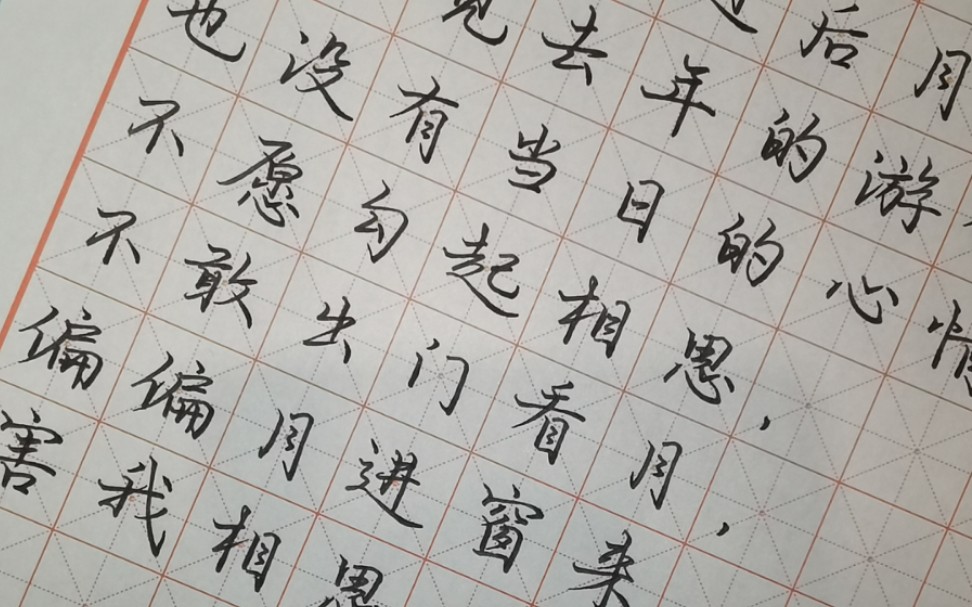 后月
去年的游
也没有当日的心情
不愿勾起相思，
不敢出门看月，
偏偏月进窗来
害我相思